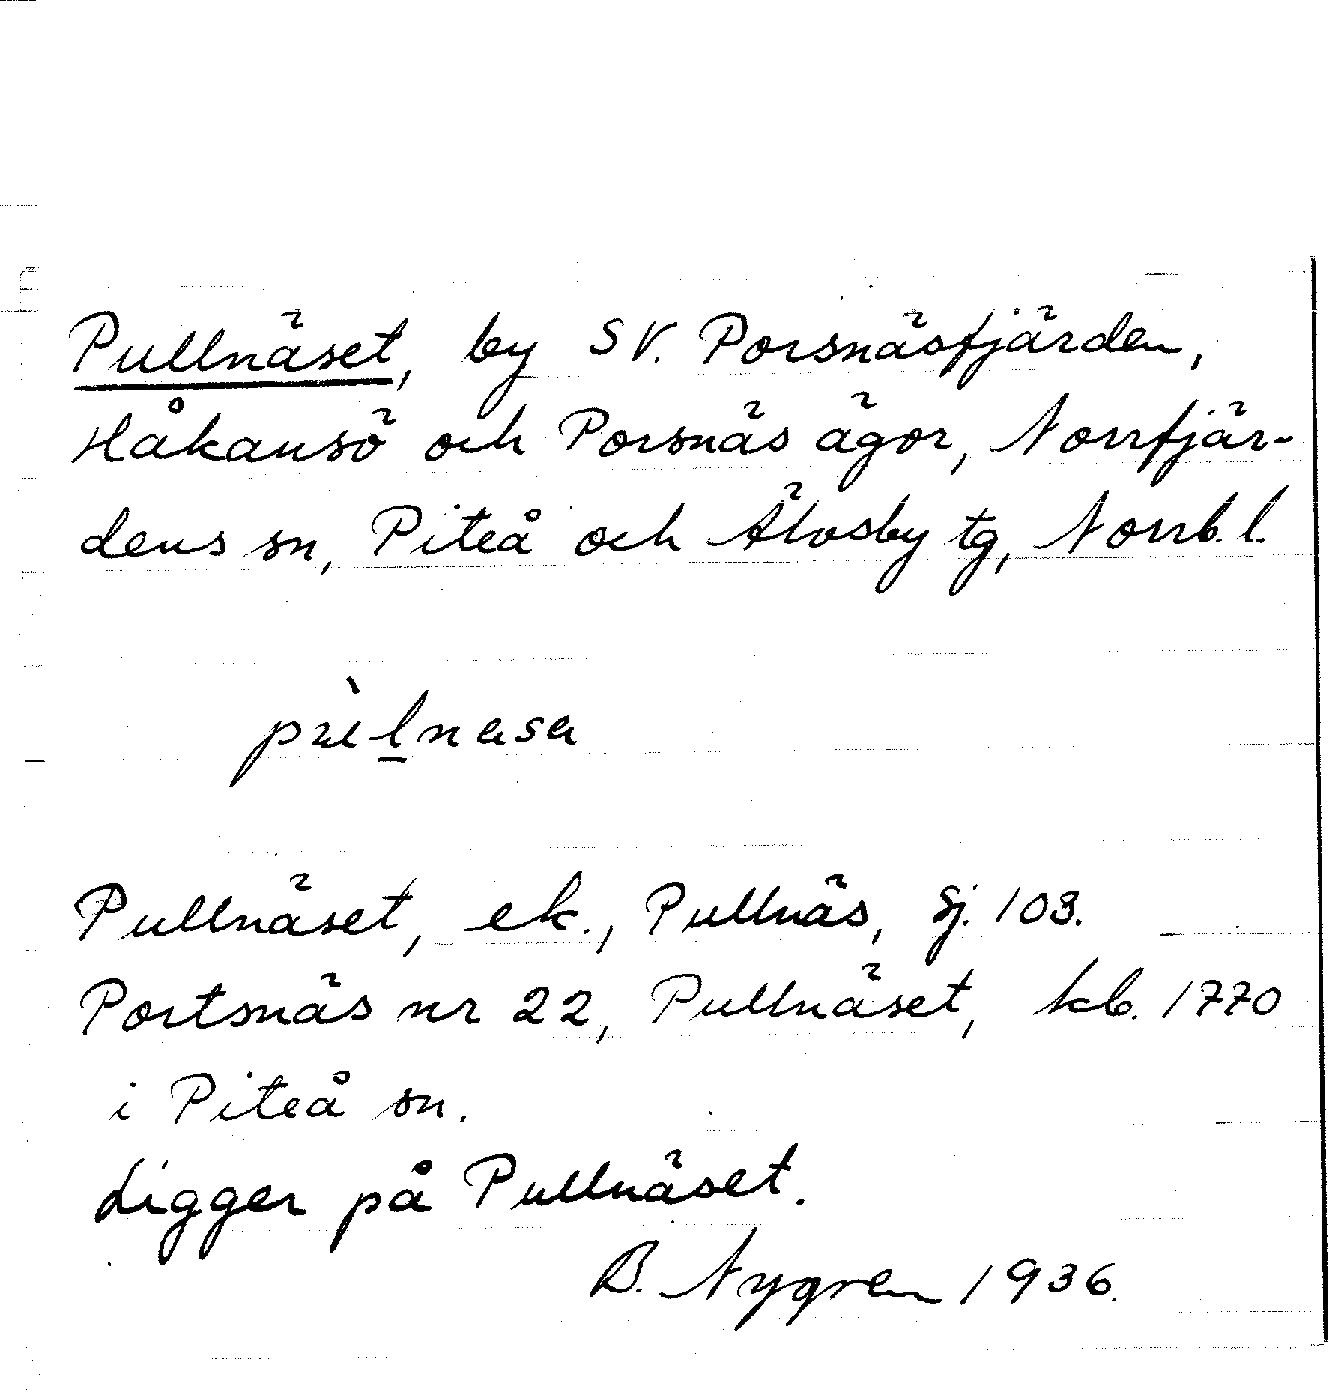 Pullnäset, by SV. Porsnäsfjärden,
Håkansö och Porsnäs ägor, Norrfjär-
dens sn, Piteå och Älvsby tg, Norrb. l.
Pullnäset, ek., Pullnäs, Sj. 103.
Portsnäs nr 22, Pullnäset, kb. 1770
i Piteå sn.
Ligger på Pullnäset.
B. Nygren 1936.